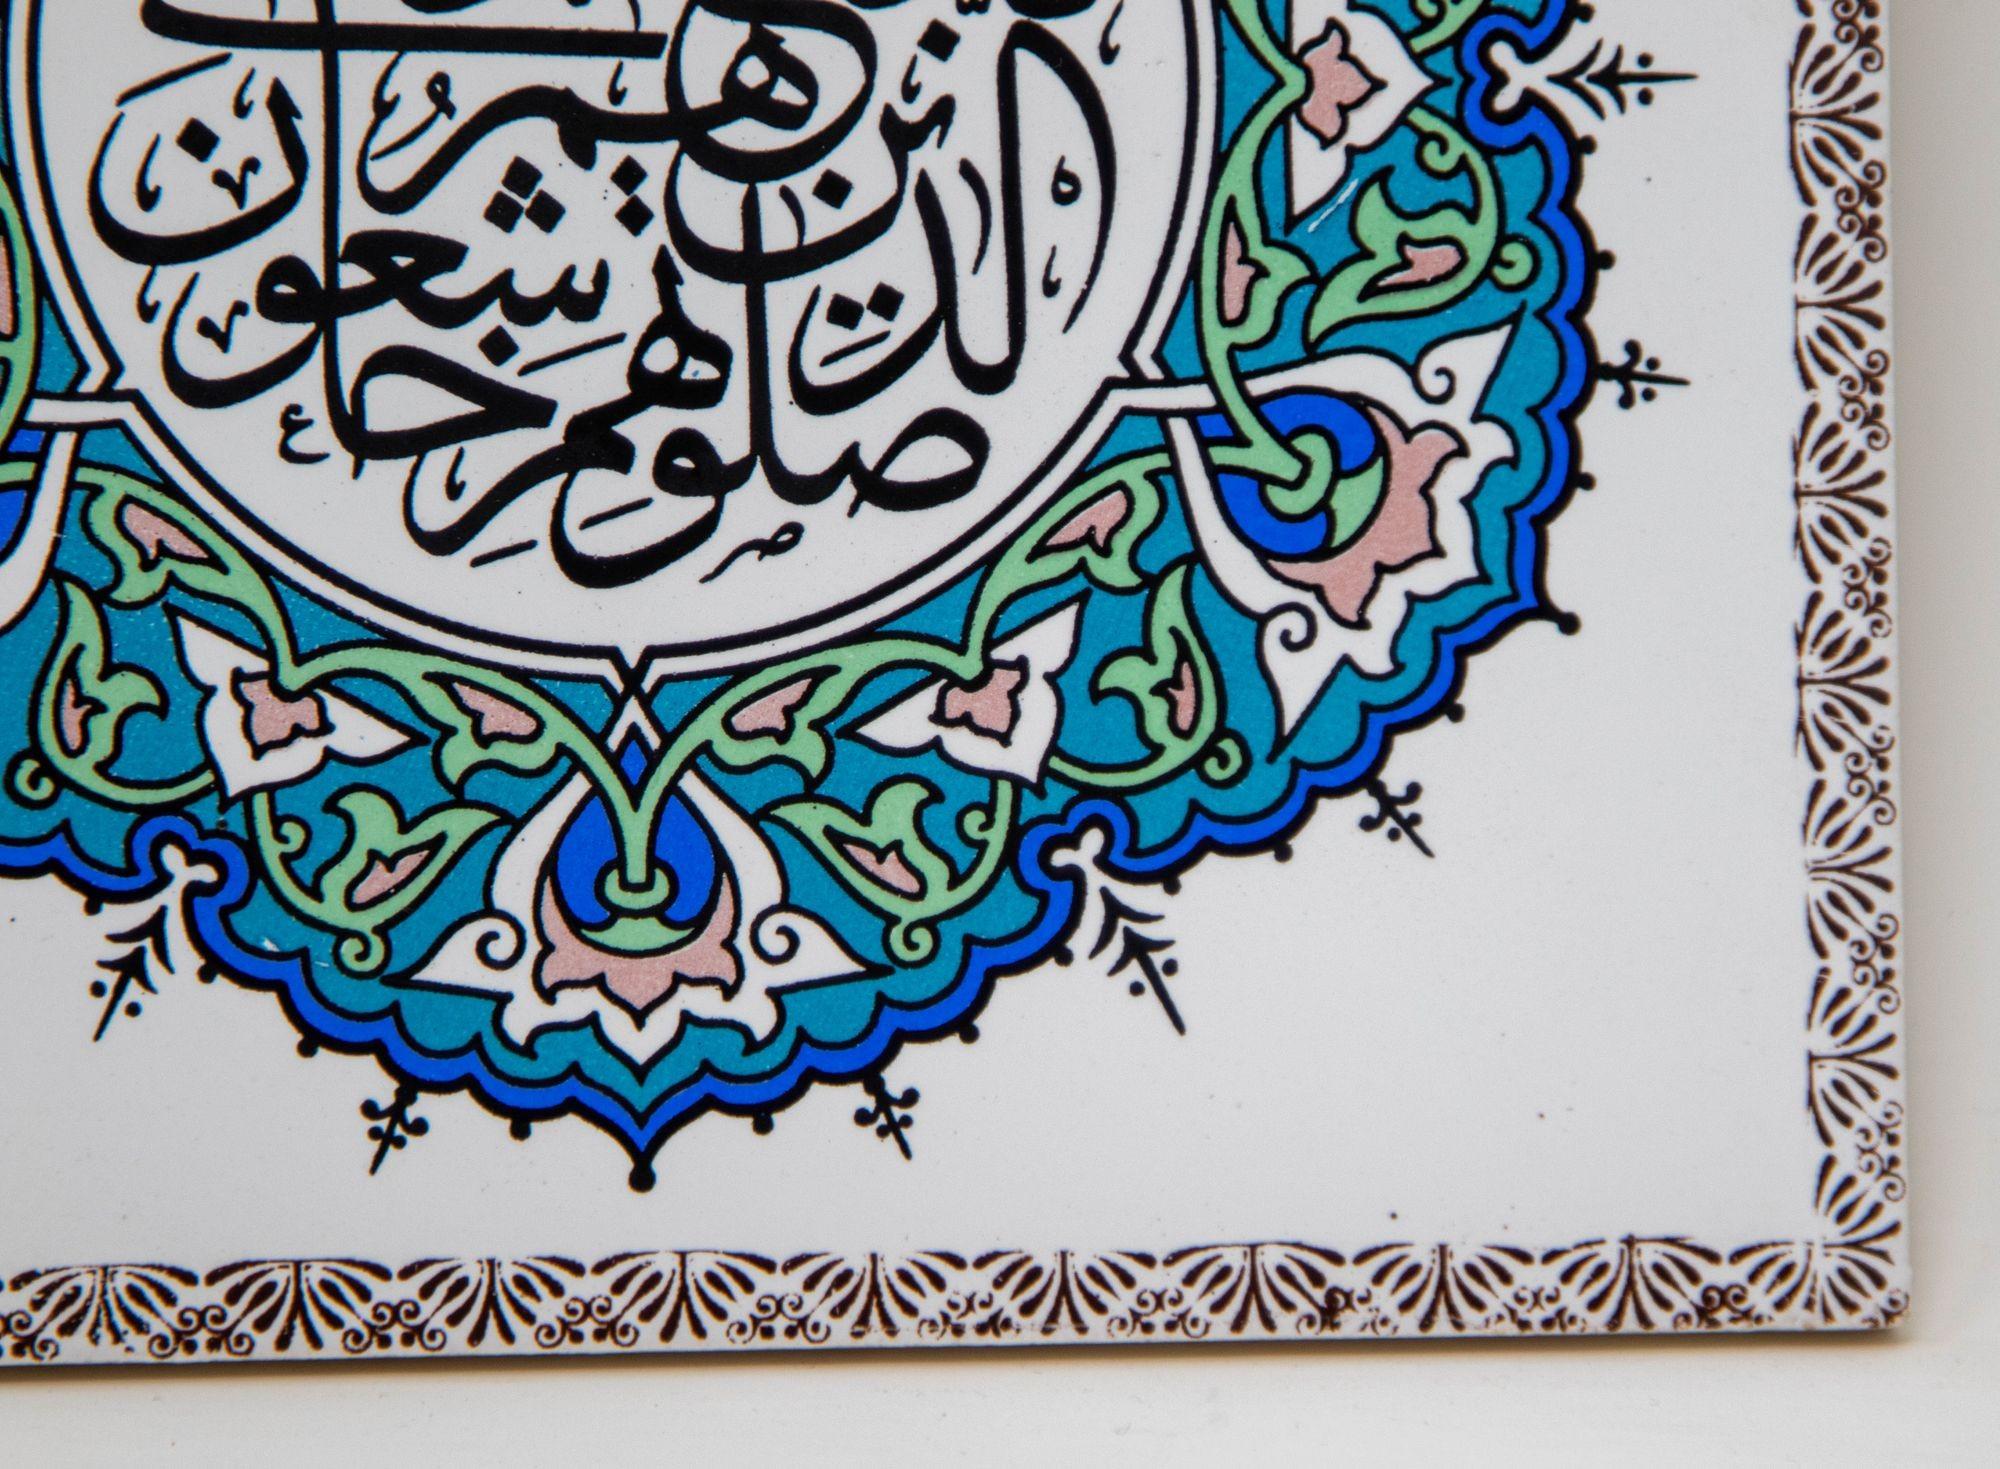 الذين هم في صلوتهم خاشعون